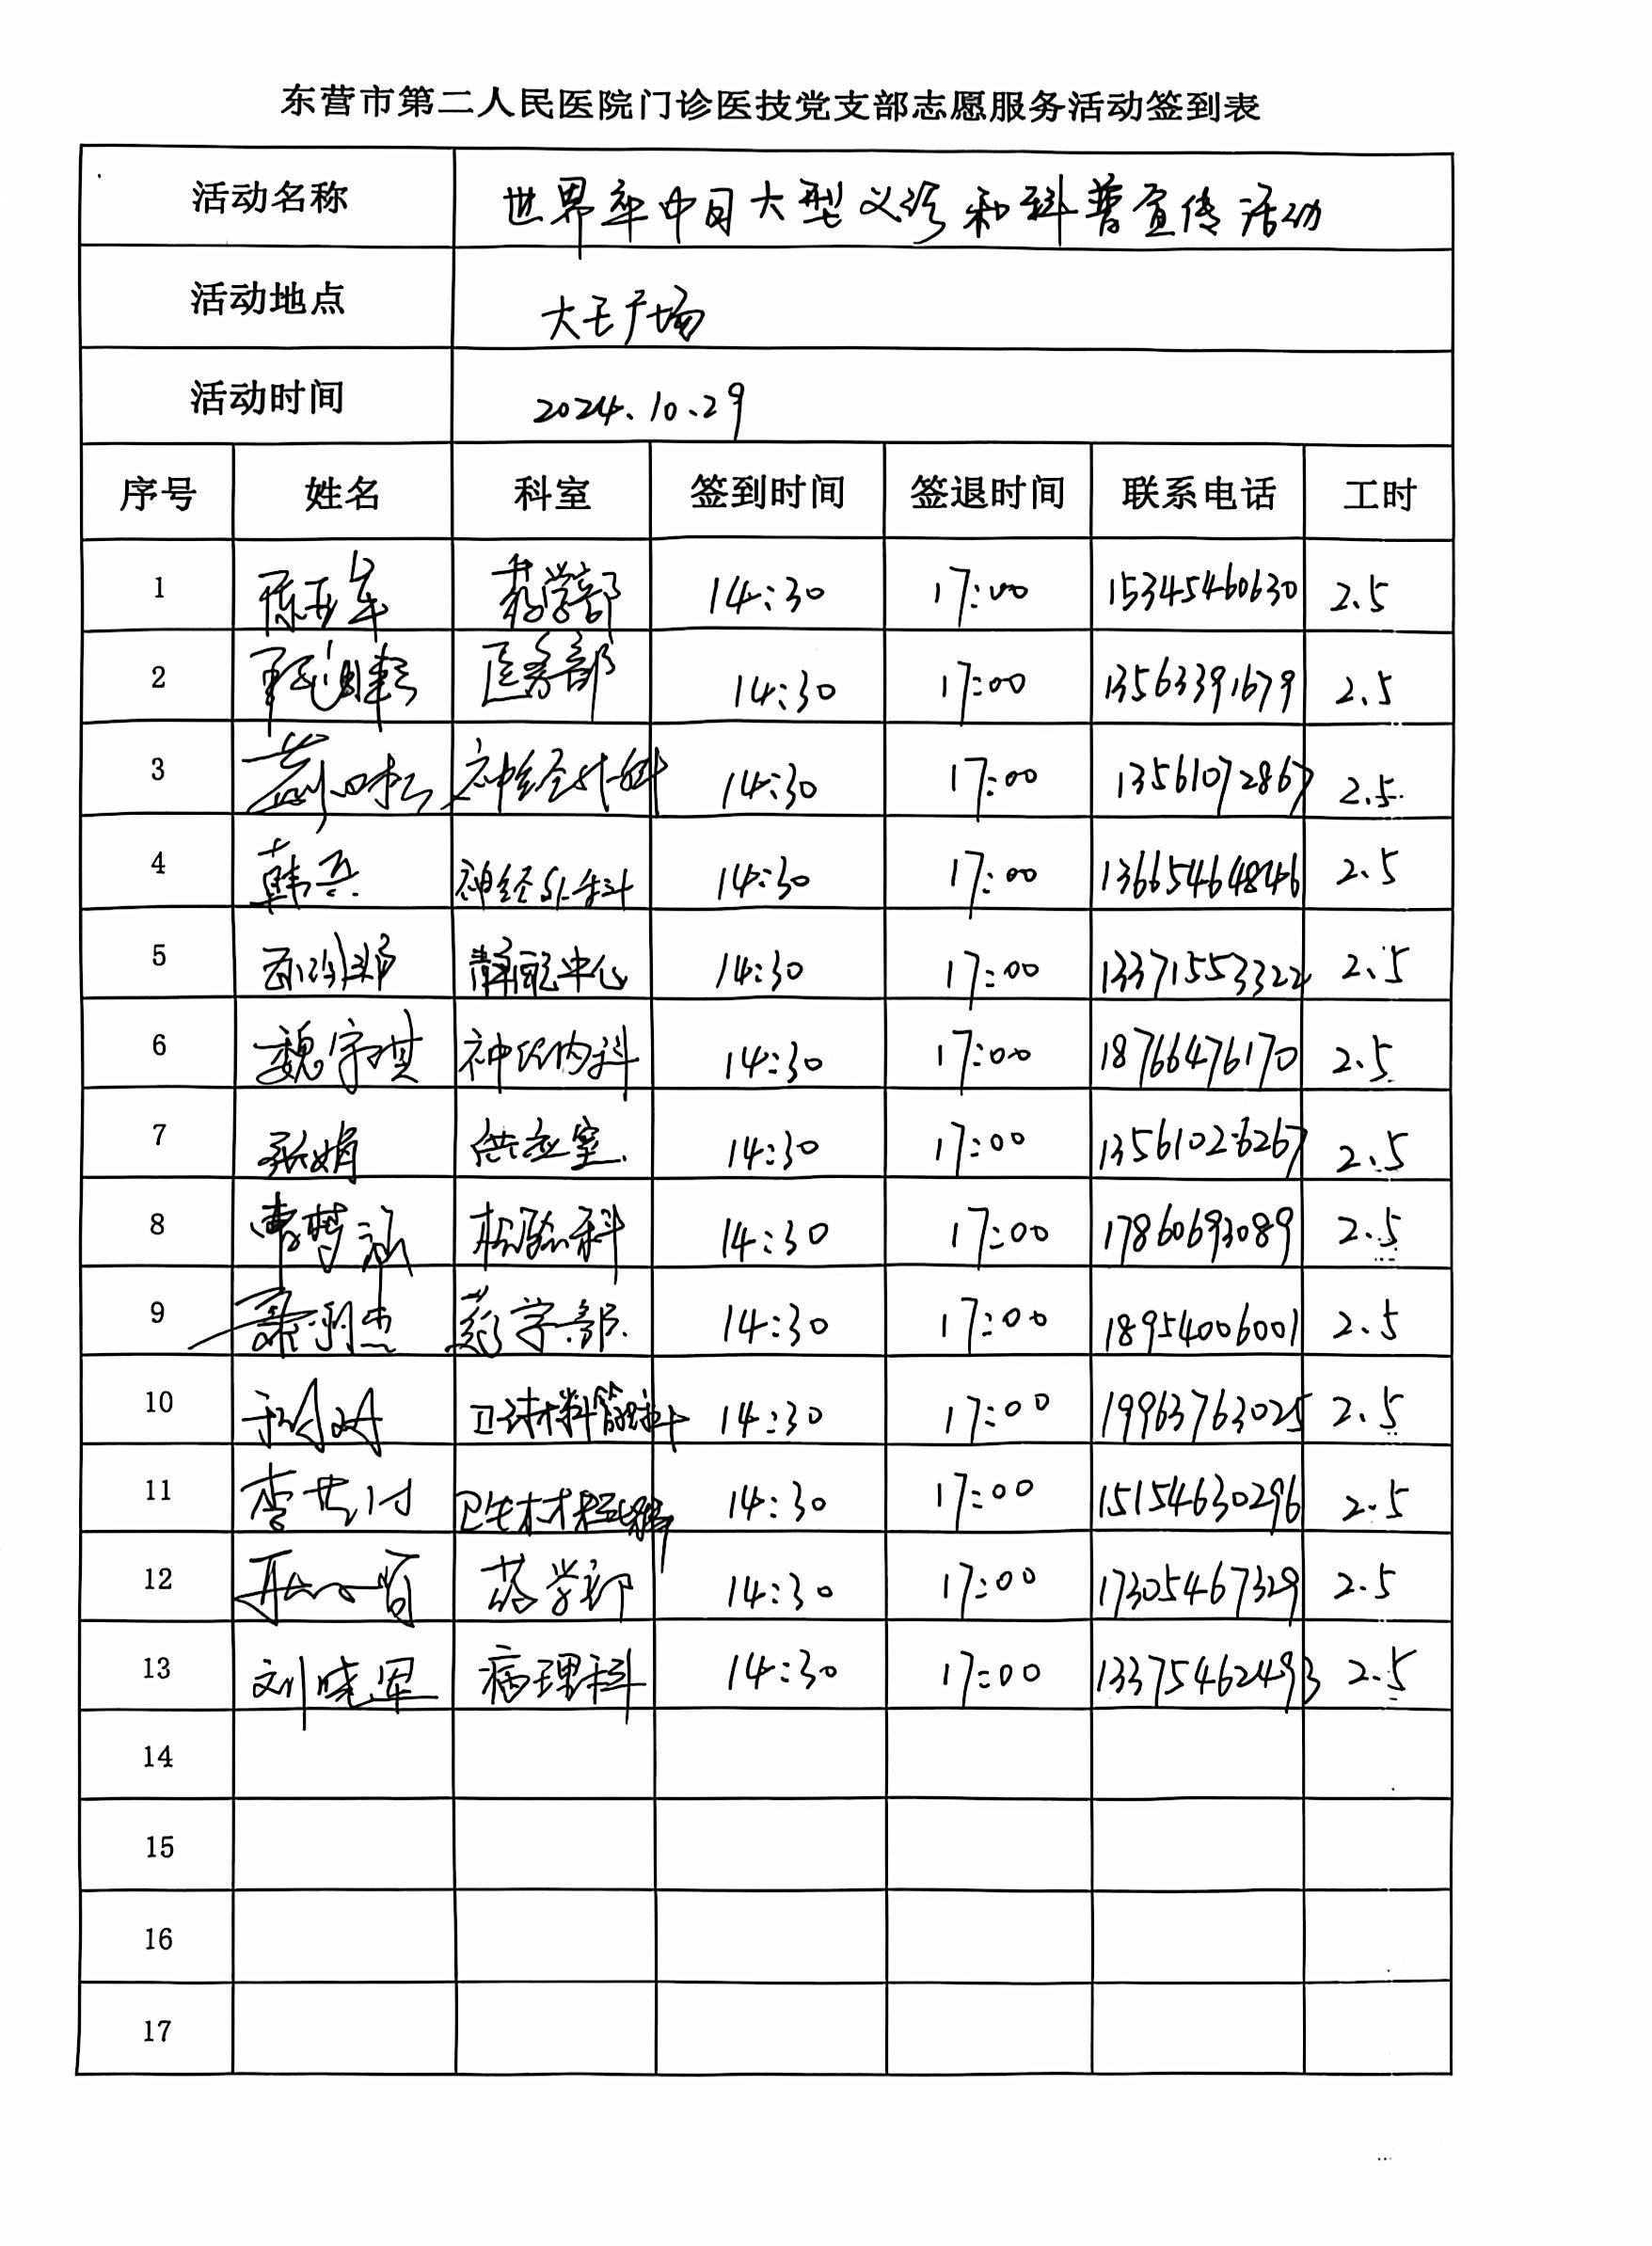 东营市第二人民医院门诊医技党支部志愿服务活动签到表
活动名称 世界卒中日大型义诊和科普宣传活动
活动地点 大王广场
活动时间 2024.10.29
序号 姓名 科室 签到时间 签退时间 联系电话 工时
1 陈亚军 药学部 14:30 17:00 15345460630 2.5
2 医务部 14:30 17:00 13563391679 2.5
3 神经外科 14:30 17:00 13561072867 2.5
4 韩兵 神经外科 14:30 17:00 13665464846 2.5
5 静配中心 14:30 17:00 13371553322 2.5
6 魏宇琪 神经内科 14:30 17:00 18766476170 2.5
7 张娟 供应室 14:30 17:00 13561026267 2.5
8 曹梦涵 检验科 14:30 17:00 17860693089 2.5
9 药学部 14:30 17:00 18954006001 2.5
10 卫生材料管理科 14:30 17:00 19963763025 2.5
11 卫生材料管理科 14:30 17:00 15154630296 2.5
12 药学部 14:30 17:00 17305467329 2.5
13 刘晓军 病理科 14:30 17:00 13375462493 2.5
14
15
16
17